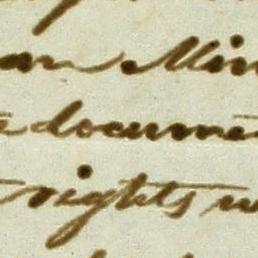 an Min
e docume
rights w